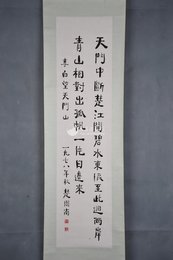 天門中斷楚江開碧水東流至此迴兩岸
青山相對出孤帆一片日邊來
李白望天門山
一九七八年秋 楚圖南